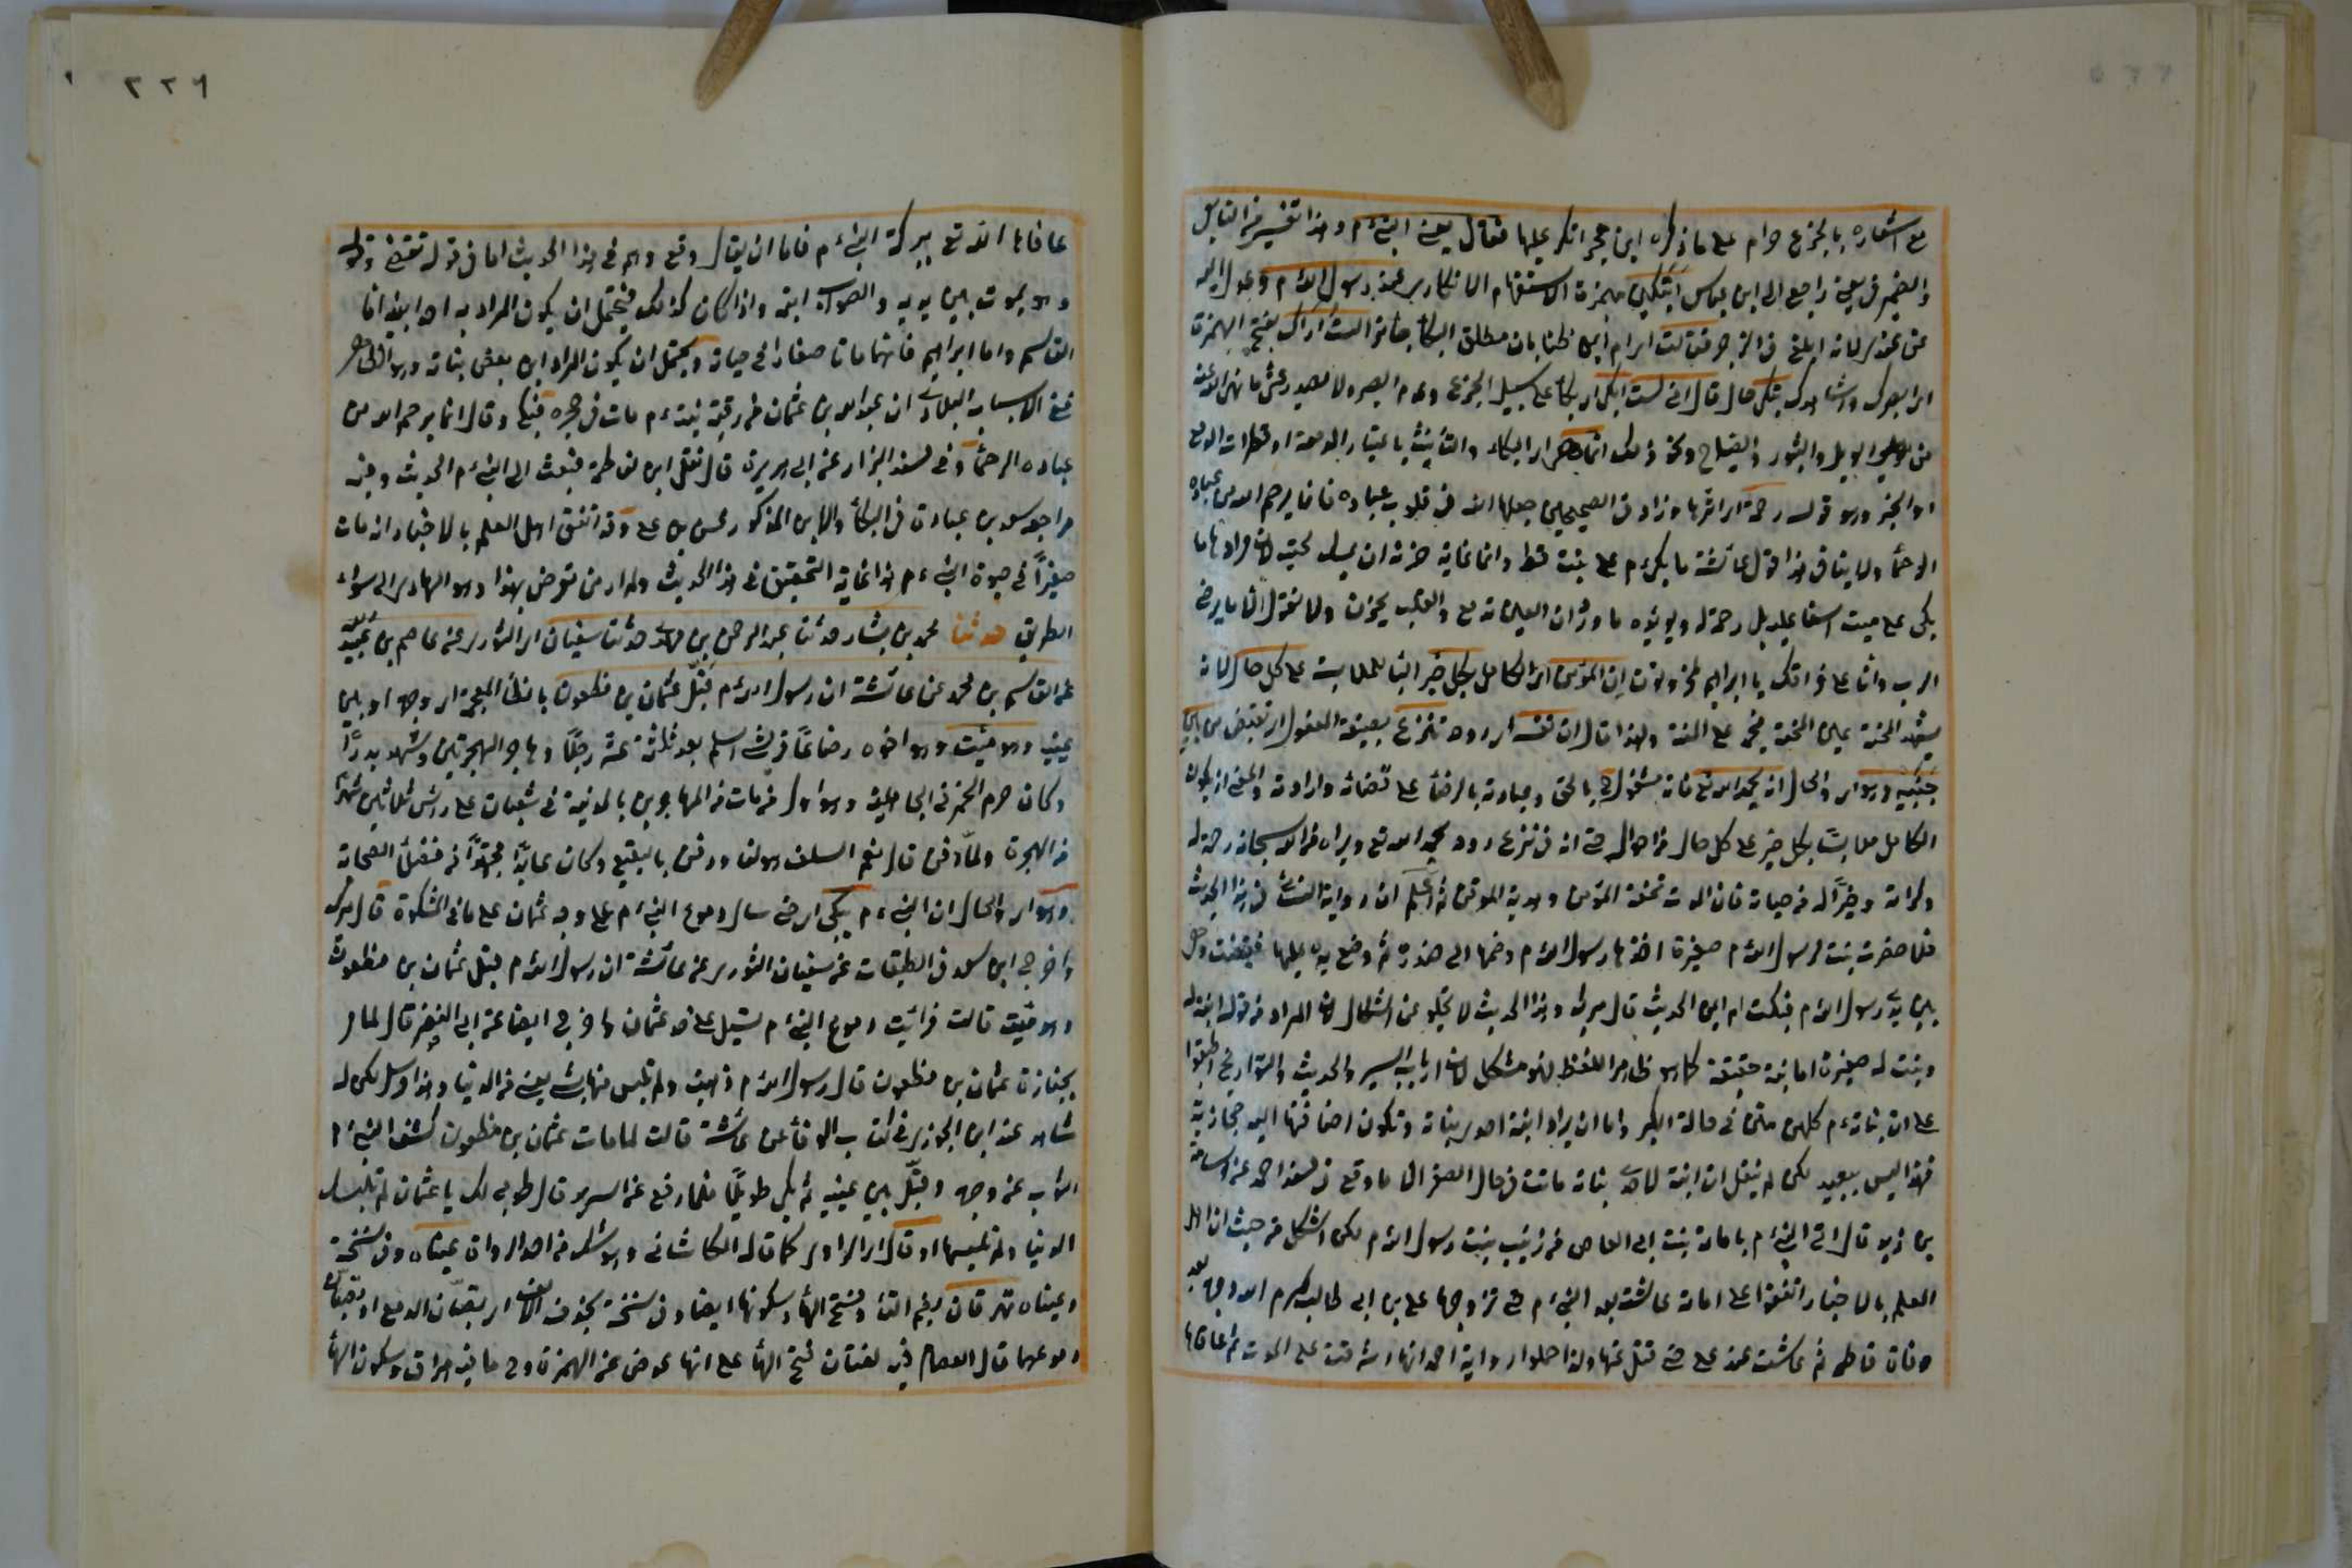 مع اشعاره بالجزع حرام على ما ذكره ابن حجر انكر عليها فقال يعنى النبى ءم وهذا تفسير من التابعى
والضمير فى يعنى راجع الى ابن عباس أتبكين بهمزة الاستفهام الانكارى عند رسول الله ءم وعدل اليه
عن عندى لانه ابلغ فى الزجر فقالت ام ايمن ظنا بان مطلق البكاء جائز الست اراك بفتح الهمزة
اى ابصرك واشاهدك تبكى حال قال انى لست ابكى اى بكاء على سبيل الجزع وعدم الصبر ولا يصدر عنى ما نهى الله عنه
من الويل والثبور والصياح ونحو ذلك انما هى اى البكاء والتأنيث باعتبار الدمعة او قطرات الدمع
او الخبر وهو قوله رحمة اى اثرها وزاد فى الصحيحين جعلها الله فى قلوب عباده فانما يرحم الله من عباده
الرحماء ولا ينافى هذا قول عائشة ما بكى ءم على ميت قط وانما غاية حزنه ان يمسك لحيته لان مرادها ما
بكى على ميت اسفا عليه بل رحمة له ويؤيده ما ورد ان العين تدمع والقلب يحزن ولا نقول الا ما يرضى
الرب وانا على فراقك يا ابراهيم لمحزونون ان المؤمن اى الكامل بكل خير الباء للملابسة على كل حال لانه
يشهد المحنة عين المنحة فيحمد على المنة ولهذا قال ان نفسه اى روحه تنزع بصيغة المفعول اى تقبض من بين
جنبيه وهو اى والحال انه يحمد الله تع فانه مشغول بالحق وعبادته بالرضاء على قضائه وارادته والمعنى ان يكون
الكامل ملابسا بكل خير على كل حال من احواله حتى انه فى نزع روحه يحمد الله تع ويراه من الله سبحانه رحمة له
وكرامة وخيرا له من حياته فان الموت تحفة المؤمن وهدية الموقن ثم اعلم ان رواية النسائى فى هذا الحديث
فلما حضرت بنت لرسول الله ءم صغيرة اخذها رسول الله ءم وضمها الى صدره ثم وضع يده عليها فقضت وهى
بين يدى رسول الله ءم فبكت ام ايمن الحديث قال ميرك وهذا الحديث لا يخلو عن اشكال لان المراد من قوله ابنة له
وبنت له صغيرة اما بنته حقيقة كما هو ظاهر اللفظ فهو مشكل لان ارباب السير والحديث والتواريخ اطبقوا
على ان بناته ءم كلهن متن فى حالة الكبر واما ان يراد ابنة احدى بناته وتكون اضافتها اليه مجازية
فهذا ليس ببعيد لكن لم ينقل ان ابنة لاحدى بناته ماتت فى حال الصغر الا ما وقع فى مسند احمد عن اسامة
بن زيد قال اتى النبى ءم بامامة بنت ابى العاص من زينب بنت رسول الله ءم لكن اشكل من حيث ان اهل
العلم بالاخبار اتفقوا على امامة عاشت بعد النبى ءم حتى تزوجها على بن ابى طالب كرم الله وجهه بعد
وفاة فاطمة ثم عاشت عند على حتى قتل عنها ولذا حملوا رواية احمد انها اشرفت على الموت ثم عافاها
٢٢٦
عافاها الله تع ببركة النبى ءم فاما ان يقال وقع وهم فى هذا الحديث اما فى قوله تقضى وقوله
وهو يموت بين يديه والصواب ابنه واذا كان كذلك فيحتمل ان يكون المراد به احد ابنيه اما
القاسم واما ابراهيم فانهما ماتا صغارا فى حياته ويحتمل ان يكون المراد ابن بعض بناته وهو الظاهر
ففى الانساب للبلاذرى ان عبد الله بن عثمان من رقية بنته ءم مات فى حجره فبكى وقال انما يرحم الله من
عباده الرحماء وفى مسند البزار عن ابى هريرة قال ثقل ابن لفاطمة فبعث الى النبى ءم الحديث وفيه
مراجعة سعد بن عبادة فى البكاء والابن المذكور محسن بن على وقد اتفق اهل العلم بالاخبار انه مات
صغيرا فى حيوة النبى ءم هذا غاية التحقيق فى هذا الحديث ولم ار من تعرض بهذا وهو الهادى الى سواء
الطريق حدثنا محمد بن بشار حدثنا عبد الرحمن بن مهدى حدثنا سفيان اى الثورى عن عاصم بن عبيد الله
عن القاسم بن محمد عن عائشة ان رسول الله ءم قبّل عثمان بن مظعون بالظاء المعجمة اى وجهه او بين
عينيه وهو ميّت وهو اخوه رضاعا قرشى اسلم بعد ثلثة عشر رجلا وهاجر الهجرتين وشهد بدرا
وكان حرم الخمر فى الجاهلية وهو اول من مات من المهاجرين بالمدينة فى شعبان على رأس ثلاثين شهرا
من الهجرة ولما دفن قال نعم السلف هو لنا ودفن بالبقيع وكان عابدا مجتهدا من فضلاء الصحابة
وهو اى والحال ان النبى ءم يبكى اى حتى سال دموع النبى ءم على وجه عثمان على ما فى المشكوة قال ميرك
واخرج ابن سعد فى الطبقات عن سفيان الثورى عن عائشة ان رسول الله ءم قبل عثمان بن مظعون
وهو ميت قالت فرأيت دموع النبى ءم تسيل على خد عثمان واخرج ايضا عن ابى النضر قال لما مر
بجنازة عثمان بن مظعون قال رسول الله ءم ذهبت ولم تلبس منها بشئ يعنى من الدنيا وهذا مرسل لكن له
شاهد عند ابن الجوزى فى كتاب الوفاء عن عائشة قالت لما مات عثمان بن مظعون كشف النبى ءم
الثوب عن وجهه وقبّل بين عينيه ثم بكى طويلا فلما رفع عن السرير قال طوبى لك يا عثمان لم تلبسك
الدنيا ولم تلبسها او قال اى الراوى كما قاله الكاشانى وهو شك من احد الرواة عيناه وفى نسخة
وعيناه تهرقان بضم التاء وفتح الهاء وسكونها ايضا وفى نسخة بحذف الالف اى يصبان الدمع او تصبان
دموعهما قال العصام فيه لغتان فتح الهاء على انها عوض عن الهمزة وح ماضيه هراق وسكون الهاء